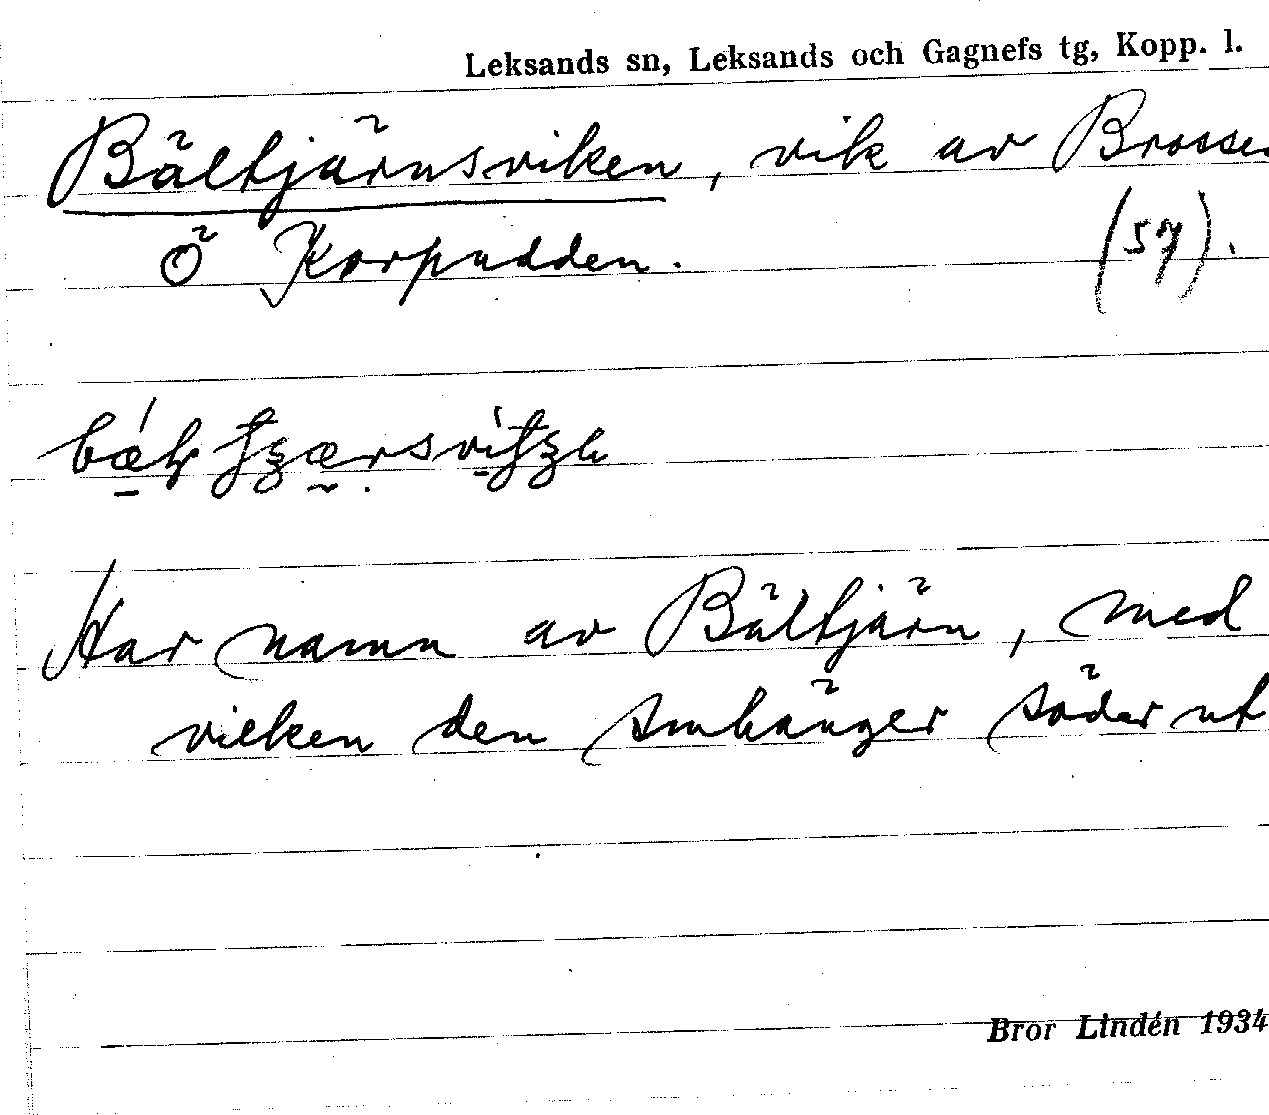 Leksands sn, Leksands och Gagnefs tg, Kopp. l.
Bältjärnsviken, vik av Brossen
Ö Korpudden. (57).
Har namn av Bältjärn, med
vilken den smhänger söder ut
Bror Lindén 1934